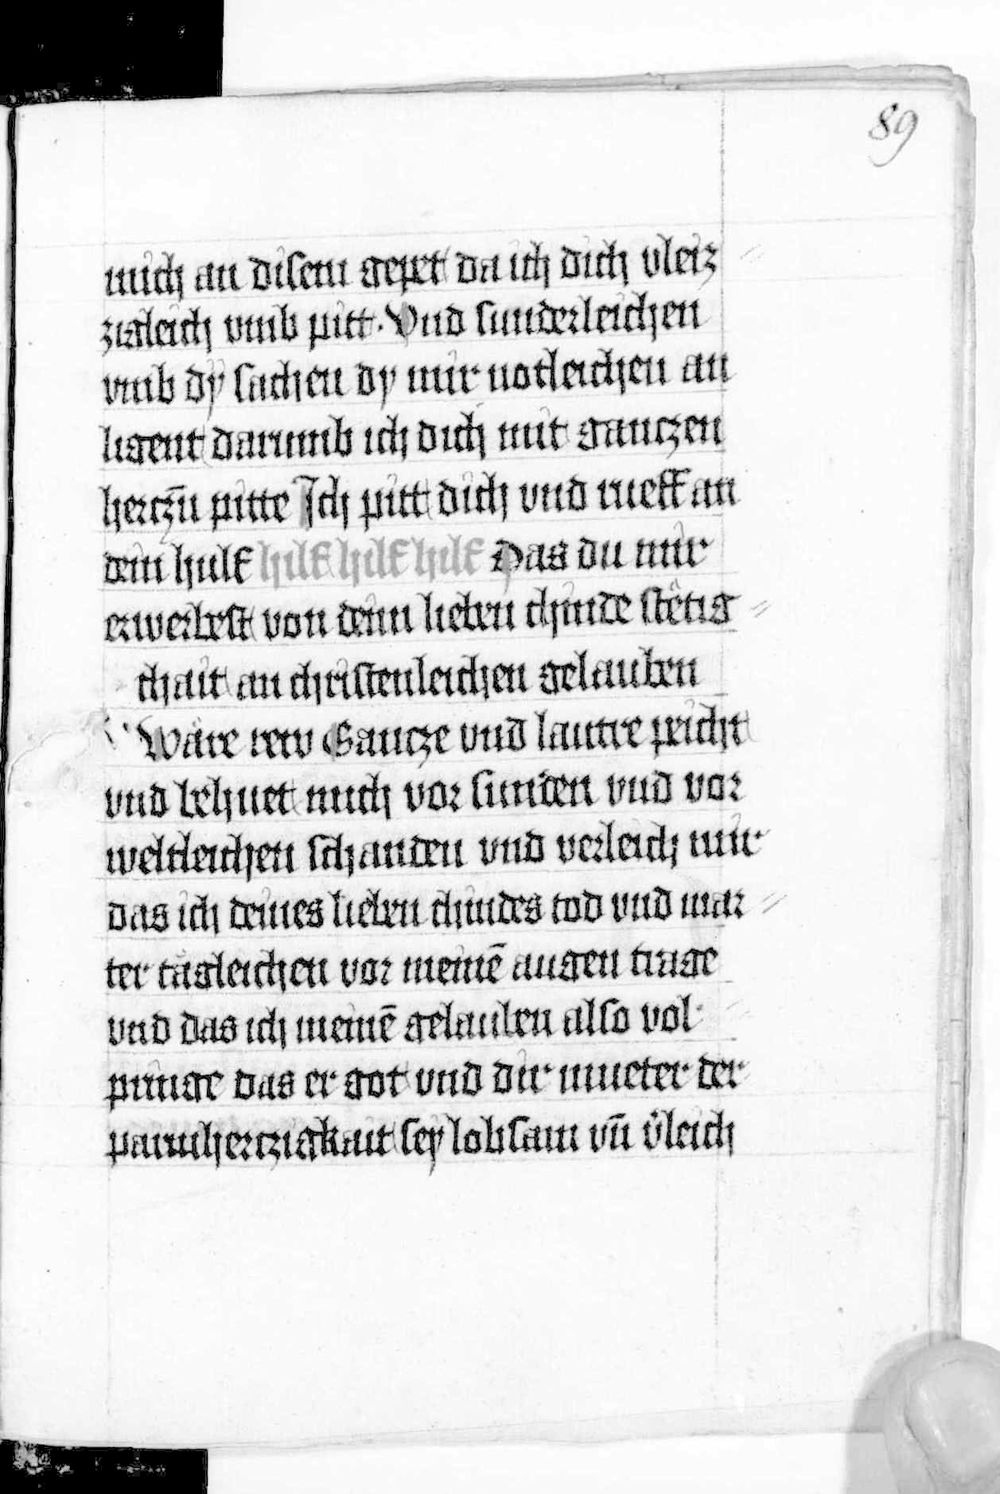 89
mich an disem gepet da ich dich vleiz
zigleich vmb pitt. Vnd sunderleichen
vmb dÿ sachen dy mir notleichen an
ligent darumb ich dich mit ganczen
herczn̄ pitte Ich pitt dich vnd rueff an
dein hulf hilf hilf hilf Das du mir
erwerbest von deim lieben chinde stëtig
chait an christenleichen gelauben
Wäre rew Gancze vnd lautre peicht
vnd behuet mich vor sunden vnd vor
weltleichen schanden vnd verleich mir
das ich deines lieben chindes tod vnd mar
ter tägleichen vor meinē augen trage
vnd das ich meinē gelauben also vol
pringe das er got vnd dir mueter der
parmherczigkait seÿ lobsam vn̄ v̈leich